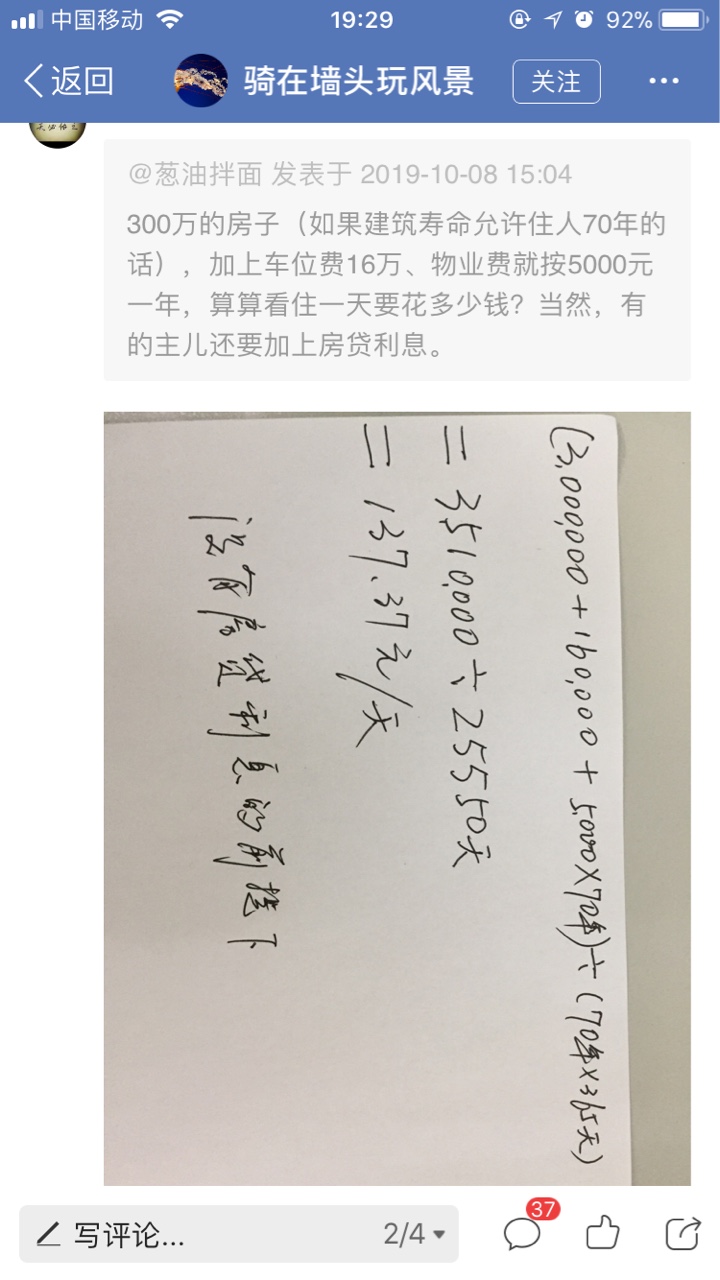 中国移动 19:29 92%
返回 骑在墙头玩风景 关注
@葱油拌面 发表于 2019-10-08 15:04
300万的房子（如果建筑寿命允许住人70年的
话），加上车位费16万、物业费就按5000元
一年，算算看住一天要花多少钱？当然，有
的主儿还要加上房贷利息。
(3,000,000+160,000+5,000×70年)÷(70年×365天)
=3,510,000÷25550天
=137.37元/天
没有房贷利息的前提下
写评论... 2/4 37